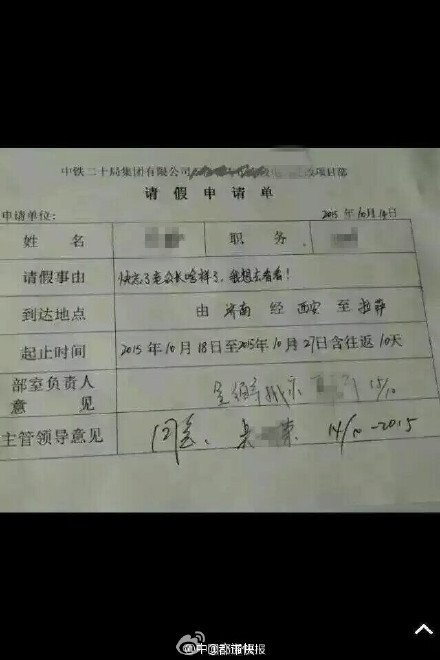 中铁二十局集团有限公司 改项目部
请假申请单
申请单位: 2015年10月14日
姓名 职务
请假事由 快忘了老公长啥样了,我想去看看!
到达地点 由 济南 经 西安 至 拉萨
起止时间 2015年10月18日至2015年10月27日含往返10天
部室负责人
意见 15/10
主管领导意见 同意. 14/10-2015
都市快报